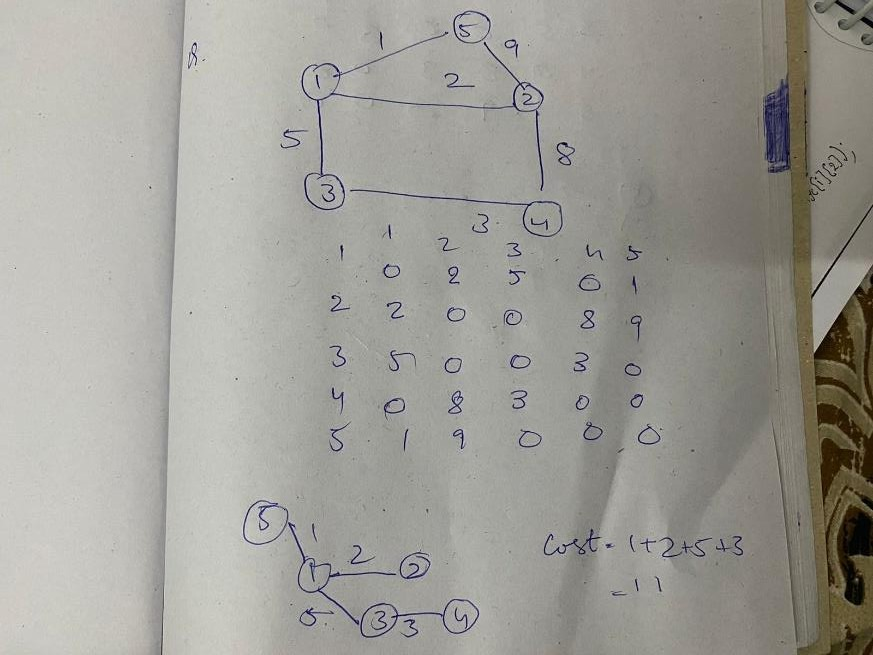 Q.
5
1
9
1
2
2
5
8
3
4
3
1 2 3 4 5
1 0 2 5 0 1
2 2 0 0 8 9
3 5 0 0 3 0
4 0 8 3 0 0
5 1 9 0 0 0
5
1
1 2 2
5 3 3 4
Cost = 1+2+5+3
= 11